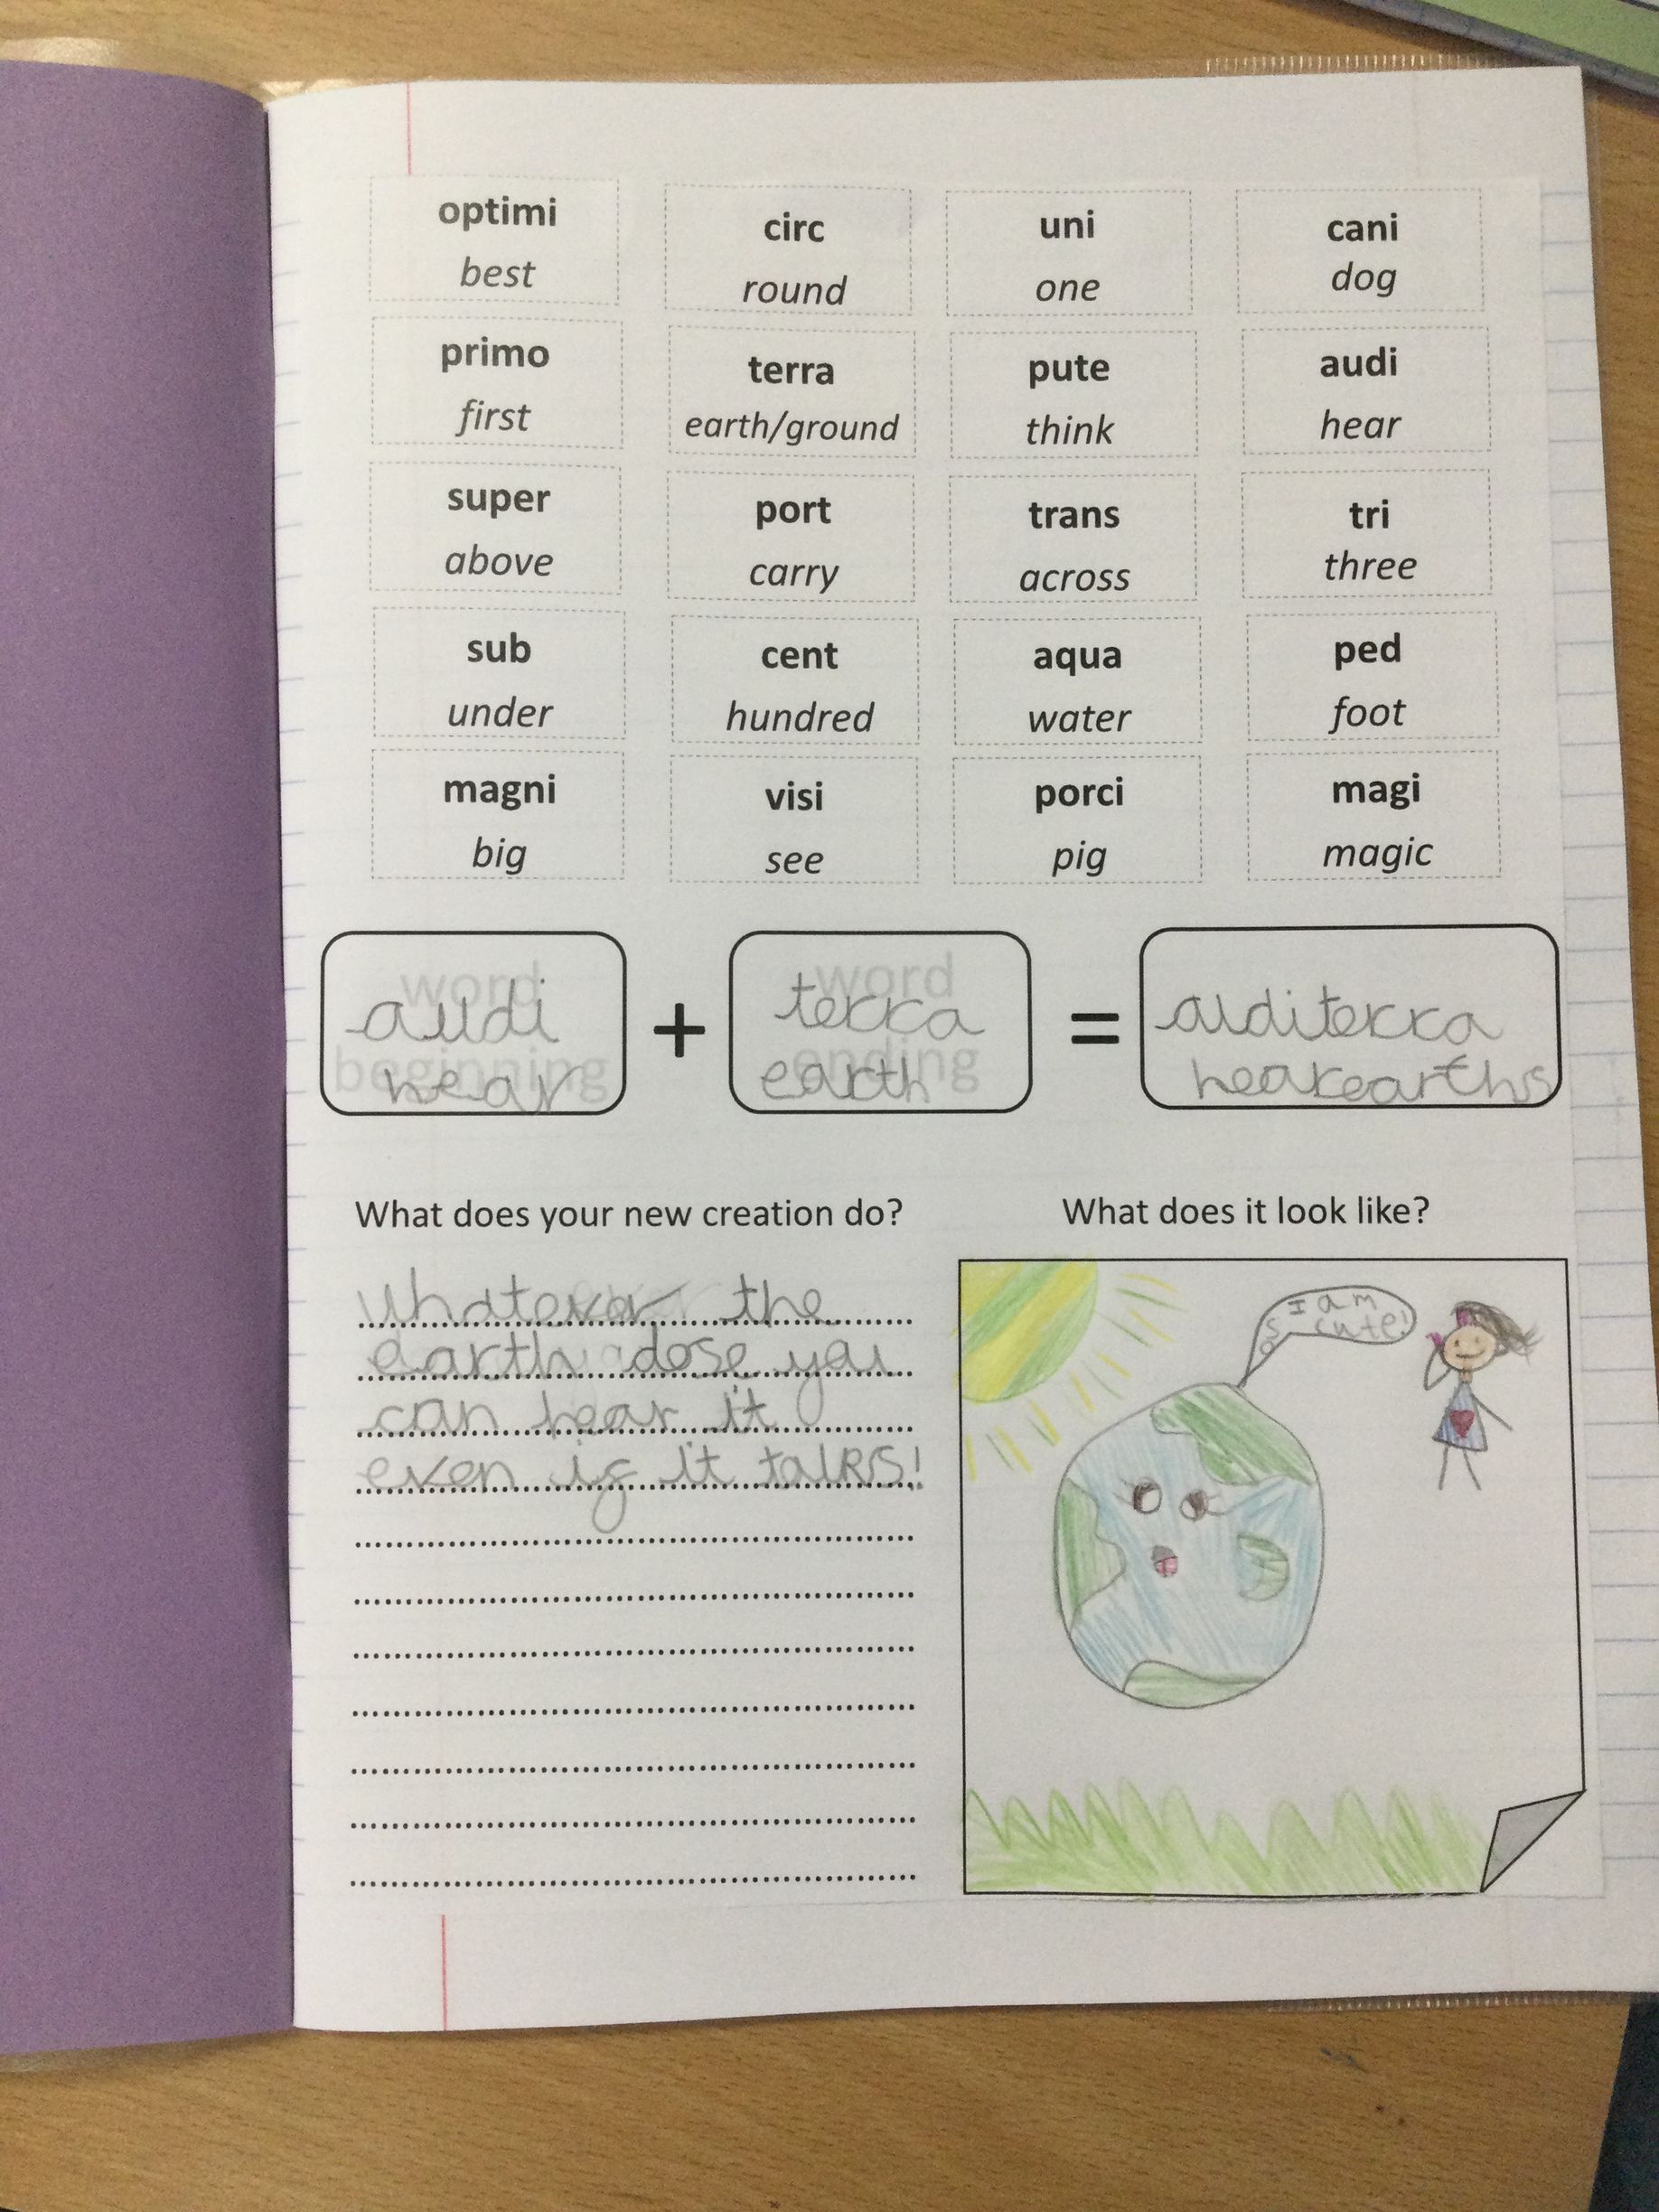 optimi circ uni cani
best round one dog
primo terra pute audi
first earth/ground think hear
super port trans tri
above carry across three
sub cent aqua ped
under hundred water foot
magni visi porci magi
big see pig magic
word word
audi + terra = auditerra
beginning ending
hear earth hearearths
What does your new creation do? What does it look like?
Whatever the
earth dose you
can hear it
even if it talks!
I am
so cute!